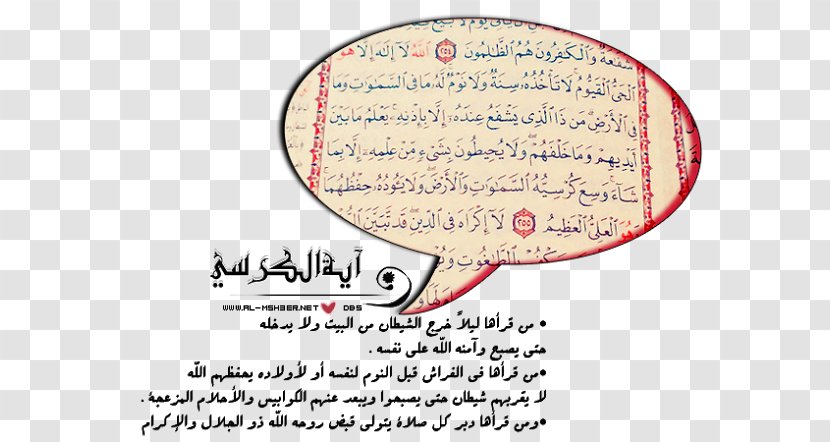 شَفَٰعَةٌ وَٱلْكَٰفِرُونَ هُمُ ٱلظَّٰلِمُونَ ٢٥٤ ٱللَّهُ لَآ إِلَٰهَ إِلَّا هُوَ
ٱلْحَىُّ ٱلْقَيُّومُ لَا تَأْخُذُهُۥ سِنَةٌ وَلَا نَوْمٌ لَّهُۥ مَا فِى ٱلسَّمَٰوَٰتِ وَمَا
فِى ٱلْأَرْضِ مَن ذَا ٱلَّذِى يَشْفَعُ عِندَهُۥٓ إِلَّا بِإِذْنِهِۦ يَعْلَمُ مَا بَيْنَ
أَيْدِيهِمْ وَمَا خَلْفَهُمْ وَلَا يُحِيطُونَ بِشَىْءٍ مِّنْ عِلْمِهِۦٓ إِلَّا بِمَا
شَآءَ وَسِعَ كُرْسِيُّهُ ٱلسَّمَٰوَٰتِ وَٱلْأَرْضَ وَلَا يَـُٔودُهُۥ حِفْظُهُمَا
وَهُوَ ٱلْعَلِىُّ ٱلْعَظِيمُ ٢٥٥ لَآ إِكْرَاهَ فِى ٱلدِّينِ قَد تَّبَيَّنَ
بِٱلطَّٰغُوتِ
آية الكرسي
WWW.AL-MSHBER.NET DBS
• من قرأها ليلاً خرج الشيطان من البيت ولا يدخله
حتى يصبع وآمنه الله على نفسه .
•من قرأها فى الفراش قبل النوم لنفسه أو لأولاده يحفظهم الله
لا يقربهم شيطان حتى يصبحوا ويبعد عنهم الكوابيس والأحلام المزعجة .
•ومن قرأها دبر كل صلاة يتولى قبض روحه الله ذو الجلال والإكرام